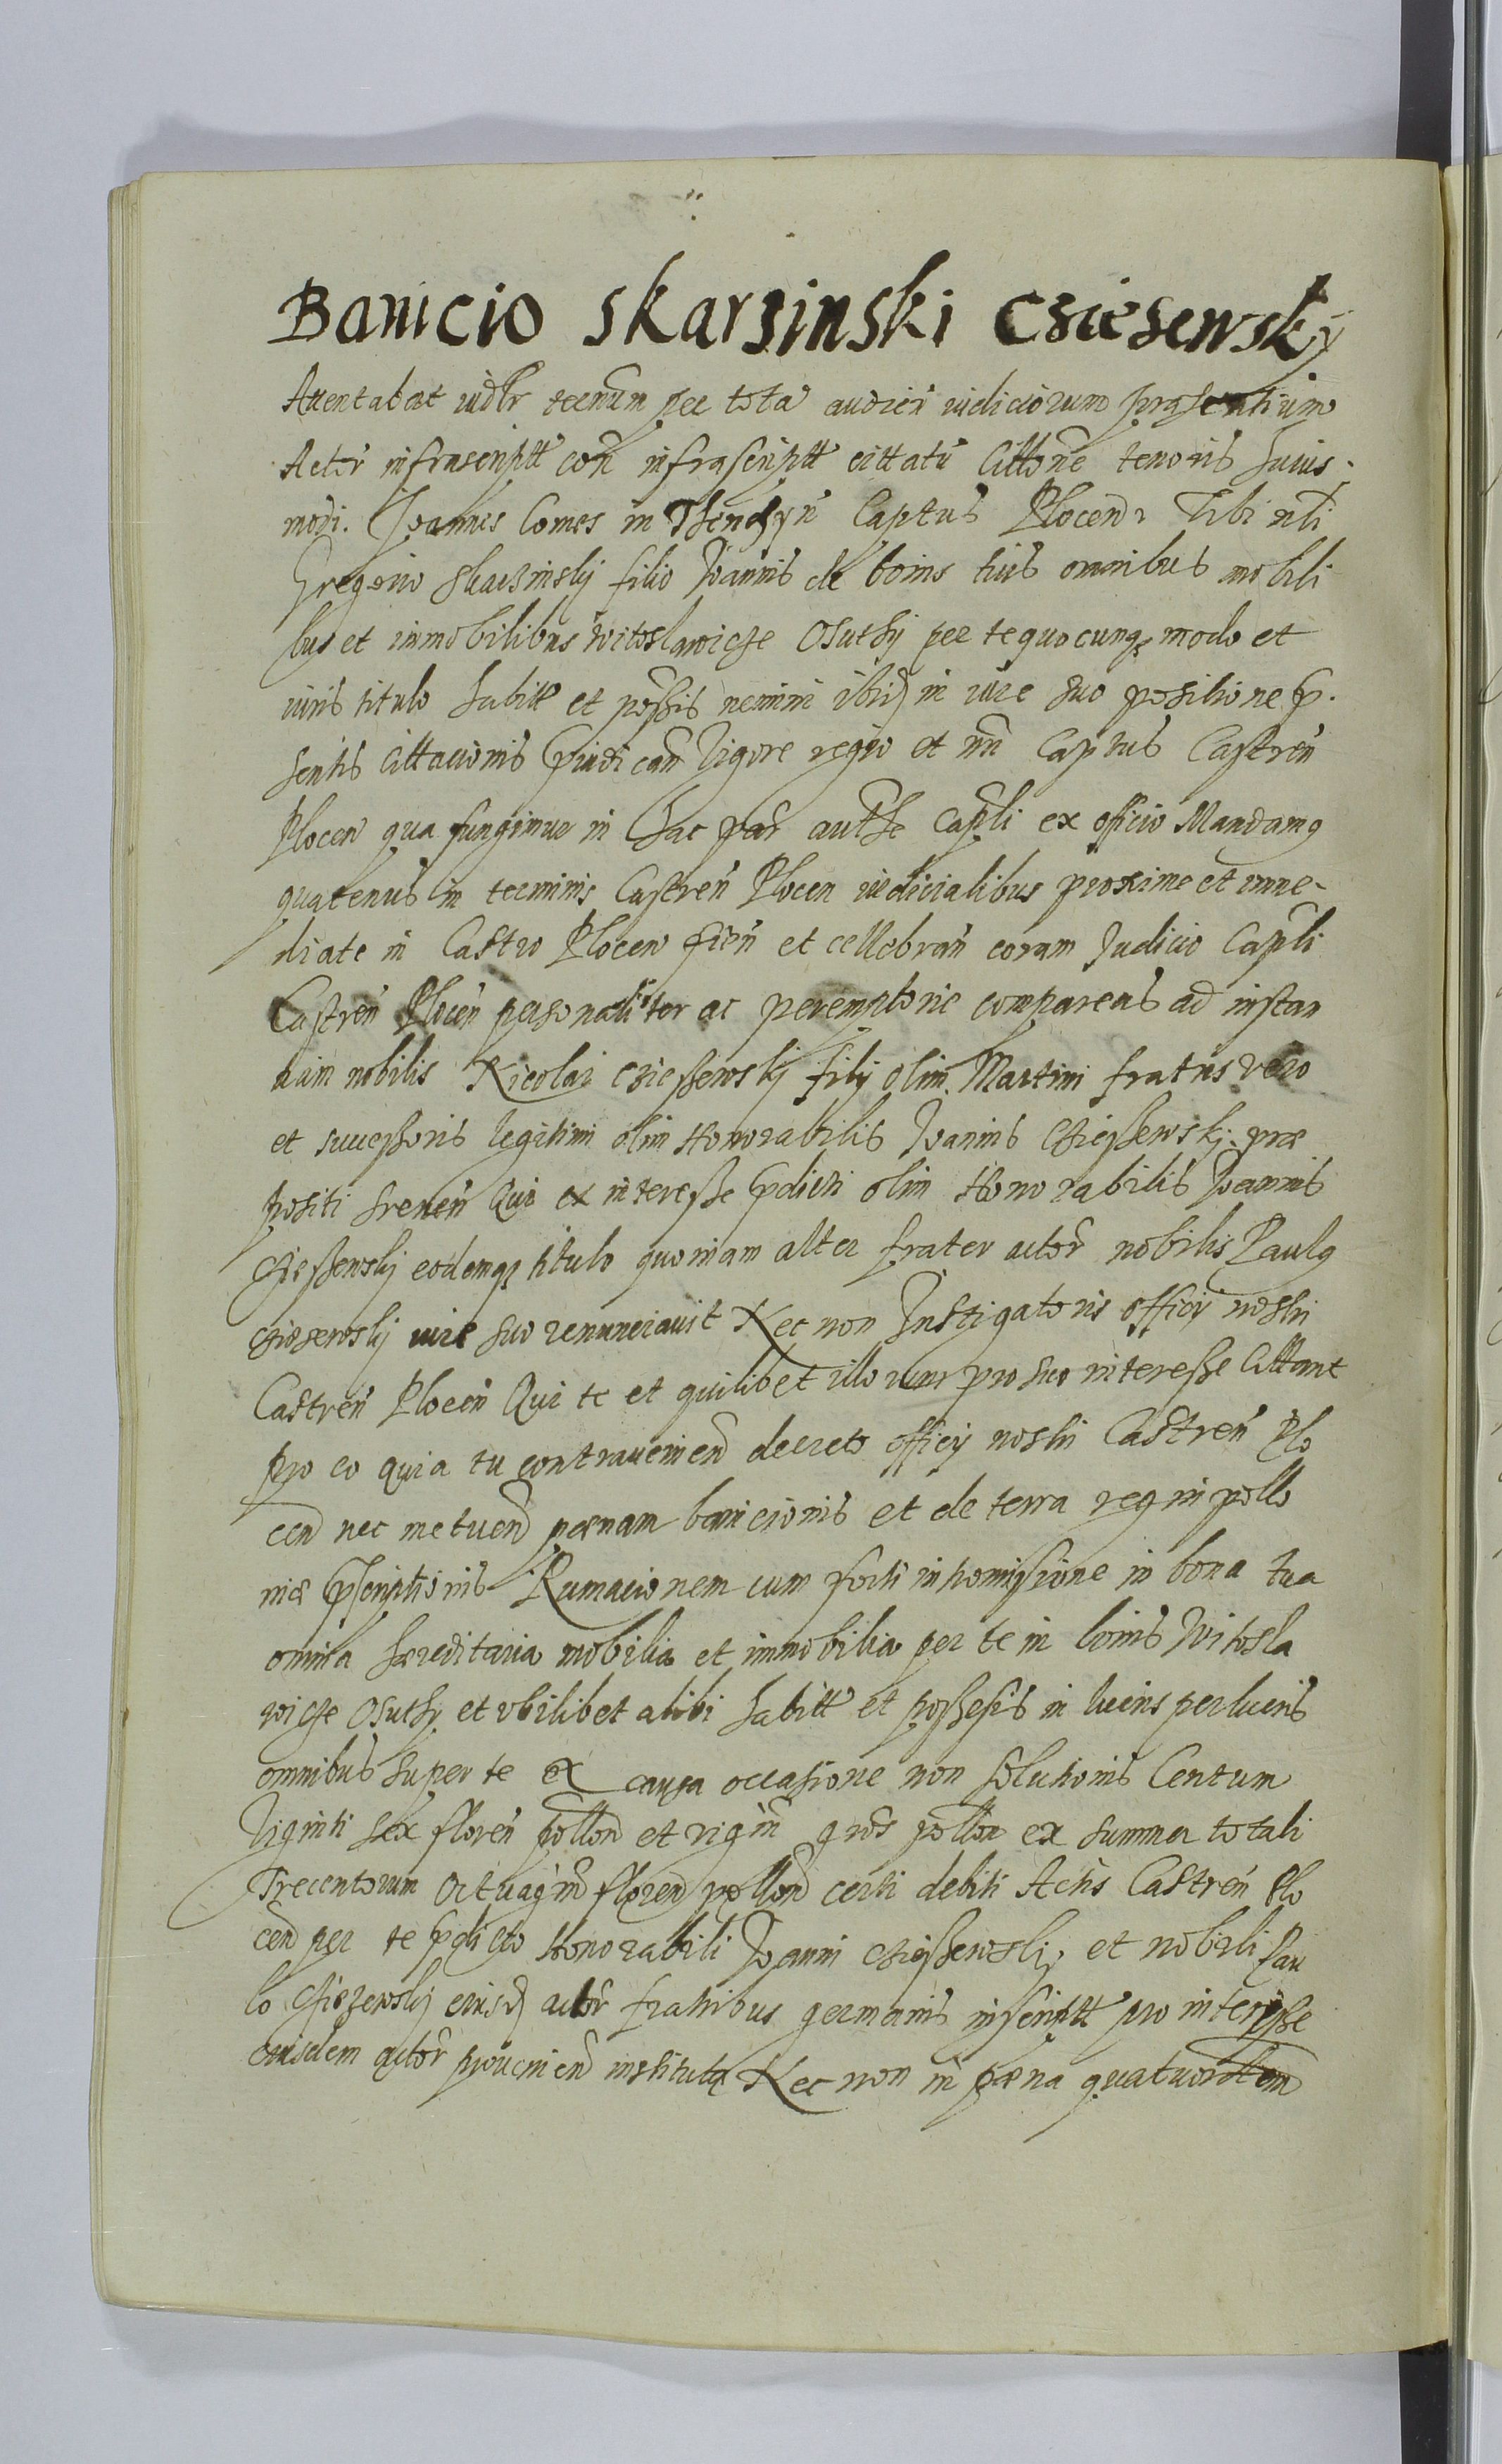 Banicio Skarsinski Csiesewsky
Attentabat iudtr termum per tota audien iudiciorum præsentium
Actor infrascriptt con infrascriptt cittatu Cittone tenoris huius-
modi. Joannes Comes in Thenczyn Captus Plocen Tibi nli
Gregorio Skarsinskij filio Joannis de bonis tuis omnibus mobili
bus et immobilibus Witoslawicze Osuthy per te quocunq modo et
iuris titulo habitt et possis nemini ibid in iure suo positione p.
sentis cittacionis piudican Vigore regio et nri Captus Castren
Plocen qua fungimur in hac par authe Capli ex officio Mandamq
quatenus in terminis Castren Plocen iudicialibus proxime et imme-
diate in Castro Plocen fien et cellebran coram Judicio Capli
Castren Plocen personaliter ac peremptorie compareas ad instan
tiam nobilis Nicolai Csiessewskj filij olim Martini fratris vero
et successoris legitimi olim Honorabilis Joannis Csiessewskj præ
positi Srenen Qui ex interesse pdicti olim Honorabilis Joannis
Csiessewskij eodemq titulo quoniam alter frater actor nobilis Paulq
Csiesewskij iure suo renunciauit Nec non Instigatoris officij nostri
Castren Plocen Qui te et quilibet illorum pro suo interesse Cittant
Pro eo quia tu contraueniend decreto officij nostri Castren Plo
cen nec metuend pœnam banicionis et de terra regni pollo
niæ pscriptionis Rumacionem cum forti intromissione in bona tua
omnia hæreditaria mobilia et immobilia per te in bonis Witosla
wicze Osuthy et vbilibet alibi habitt et possesis in lucris perlucris
omnibus super te ex causa occasione non solutionis Centum
Viginti sex floren pollon et vigin gros pollon ex summa totali
Trecentorum Octuagin floren pollon certi debiti Actis Castren Plo
cen per te pdicto Honorabili Joanni Csiessewskij et nobili Pau
lo Csiezewskij eiusd actor fratribus germanis inscriptt pro interesse
eiusdem actor proueniend institutq Nec non in pœna quatuordecim